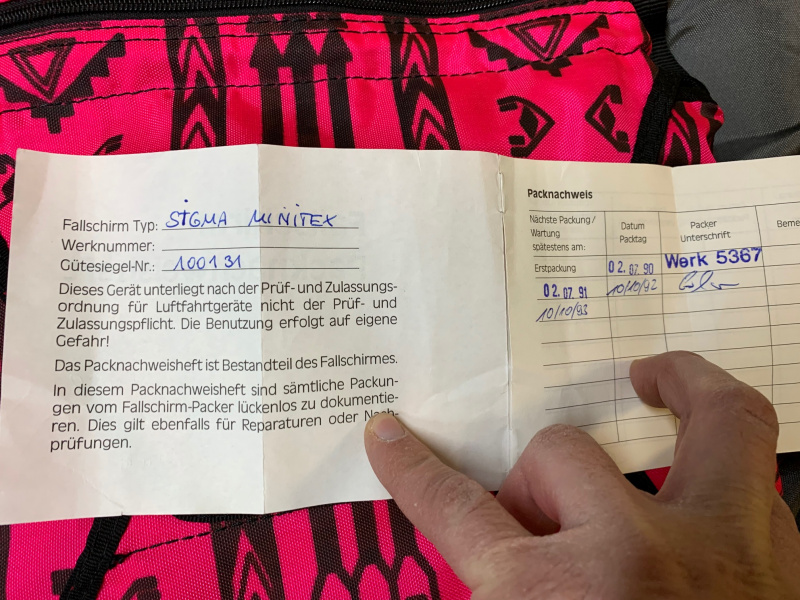 Fallschirm Typ: SIGMA MINITEX
Werknummer:
Gütesiegel-Nr.: 100131
Dieses Gerät unterliegt nach der Prüf- und Zulassungs-
ordnung für Luftfahrtgeräte nicht der Prüf- und
Zulassungspflicht. Die Benutzung erfolgt auf eigene
Gefahr!
Das Packnachweisheft ist Bestandteil des Fallschirmes.
In diesem Packnachweisheft sind sämtliche Packun-
gen vom Fallschirm-Packer lückenlos zu dokumentie-
ren. Dies gilt ebenfalls für Reparaturen oder Nach-
prüfungen.
Packnachweis
Nächste Packung /
Wartung
spätestens am:
Datum
Packtag
Packer
Unterschrift
Beme
Erstpackung 02.07.90 Werk 5367
02.07.91 10/10/92
10/10/93